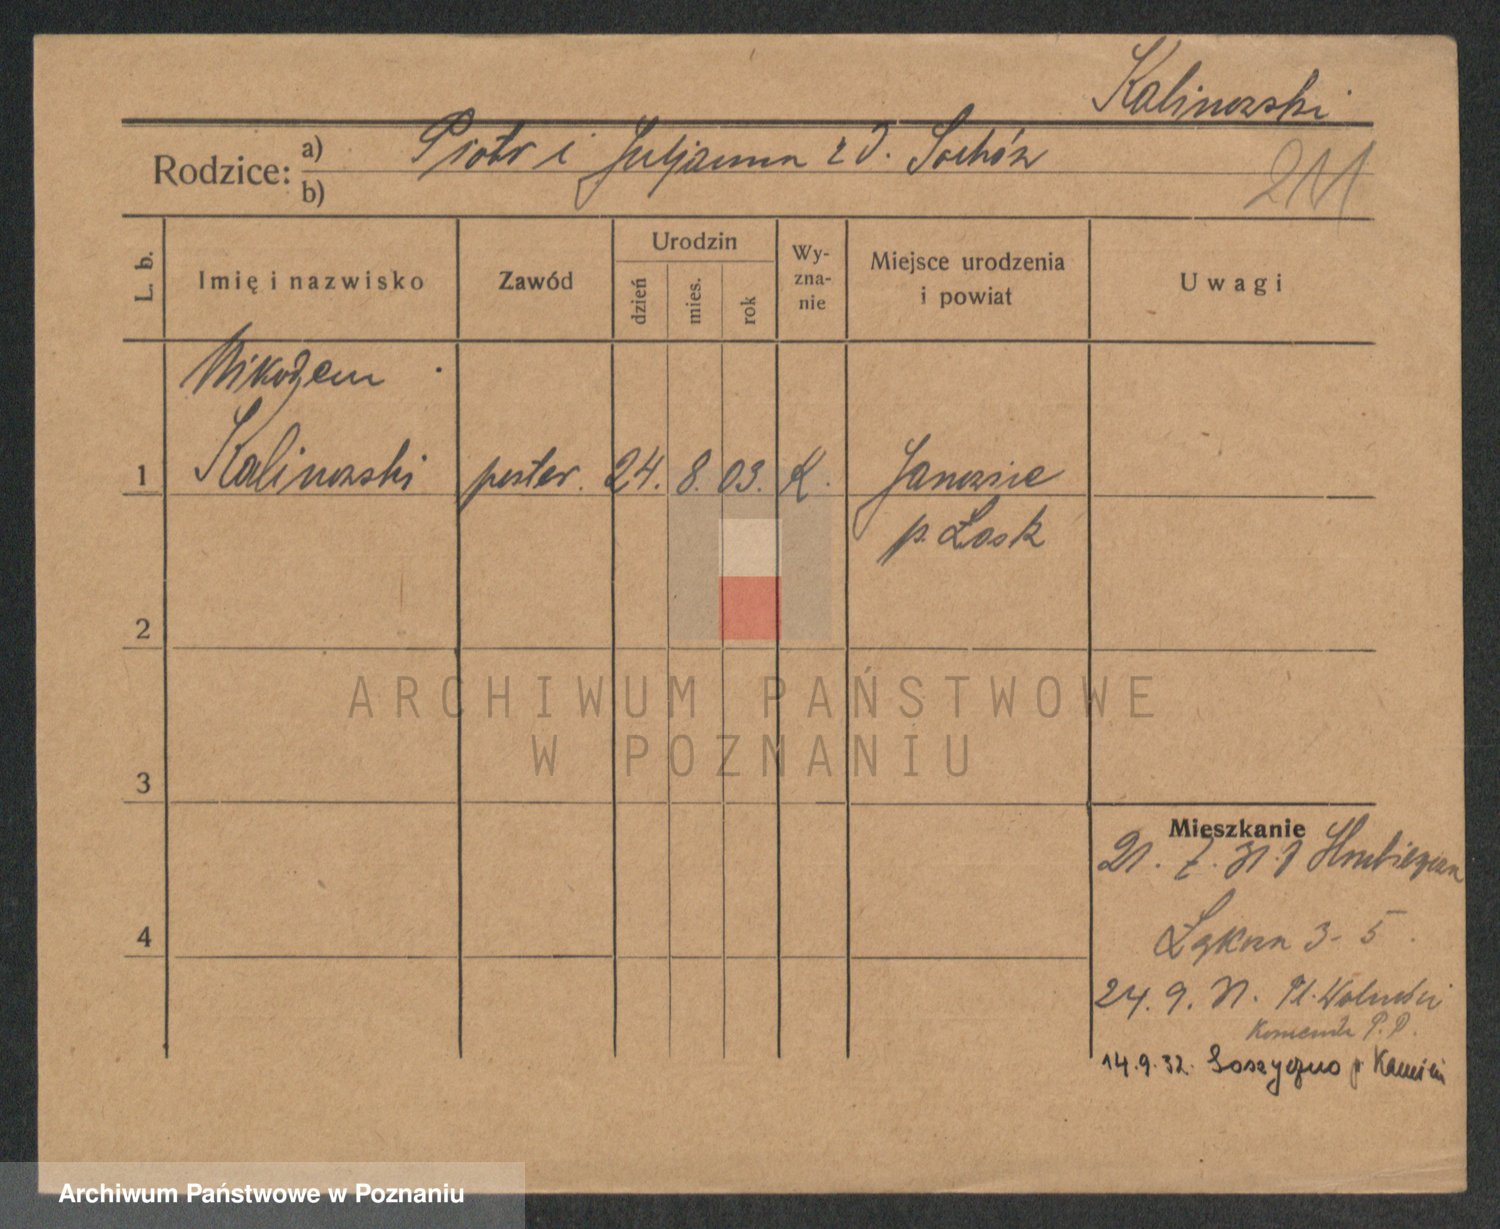 Kalinowski
Rodzice: a) Piotr i Juljanna z d. Sochów
b)
211
L. b.
Imię i nazwisko
Zawód
Urodzin
dzień
mies.
rok
Wy-
zna-
nie
Miejsce urodzenia
i powiat
Uwagi
Mikołem
1 Kalinowski poster. 24. 8. 03. K. Janowice
p. Łask
2
ARCHIWUM PAŃSTWOWE
W POZNANIU
3
Mieszkanie
21. 7. 31
Łąkowa 3 - 5.
4
24. 9. 31. Pl. Wolności
Komenda P. P.
14.9.32. p Kamień
Archiwum Państwowe w Poznaniu